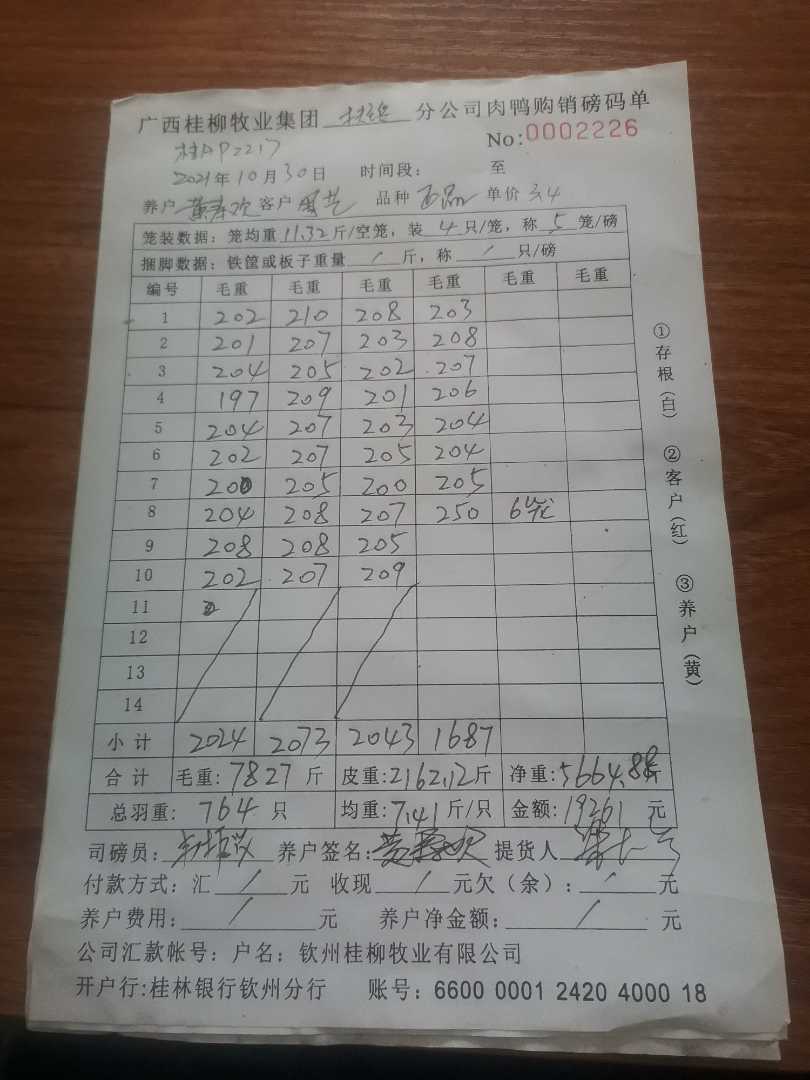 广西桂柳牧业集团 分公司肉鸭购销磅码单
No:0002226
2021年10月30日 时间段: 至
养户 黄寿欢 客户 品种 单价 3.4
笼装数据: 笼均重 11.32 斤/空笼, 装 4 只/笼, 称 5 笼/磅
捆脚数据: 铁筐或板子重量 / 斤, 称 / 只/磅
编号 毛重 毛重 毛重 毛重 毛重 毛重
1 202 210 208 203
2 201 207 203 208
3 204 205 202 207
4 197 209 201 206
5 204 207 203 204
6 202 207 205 204
7 200 205 200 205
8 204 208 207 250 6笼
9 208 208 205
10 202 207 209
11
12
13
14
小计 2024 2073 2043 1687
合计 毛重: 7827 斤 皮重: 2162.12 斤 净重: 5664.88 斤
总羽重: 764 只 均重: 7.41 斤/只 金额: 19261 元
司磅员: 养户签名: 黄寿欢 提货人
付款方式: 汇 / 元 收现 / 元欠(余): / 元
养户费用: / 元 养户净金额: / 元
公司汇款帐号: 户名: 钦州桂柳牧业有限公司
开户行:桂林银行钦州分行 账号: 6600 0001 2420 4000 18
①存根(白) ②客户(红) ③养户(黄)